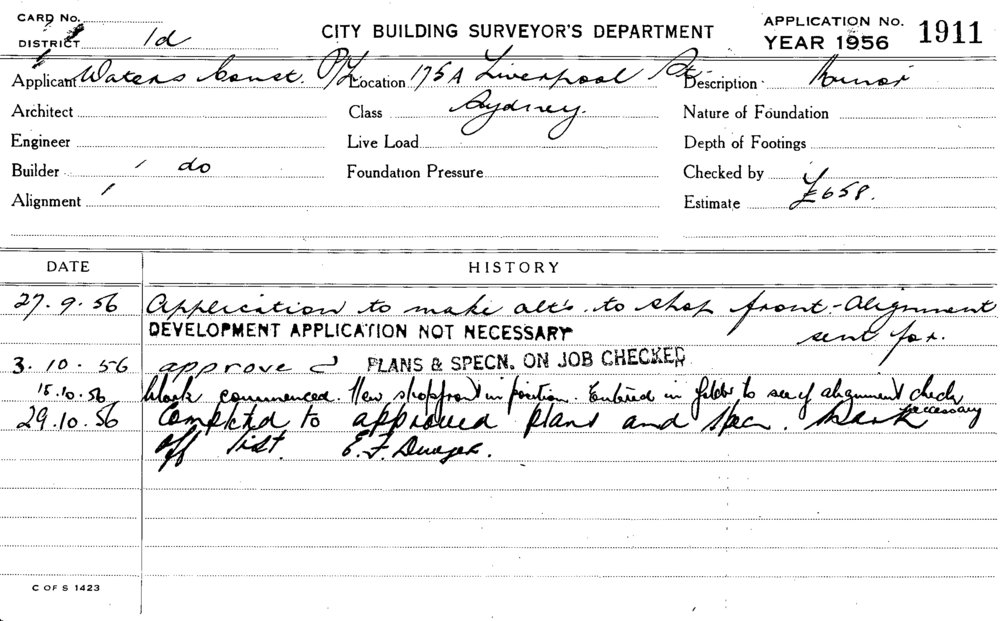 CARD No.
DISTRICT 1d
CITY BUILDING SURVEYOR'S DEPARTMENT
APPLICATION No. 1911
YEAR 1956
Applicant Waters Const. P/L Location 175A Liverpool St. Description Minor
Architect Class Sydney. Nature of Foundation
Engineer Live Load Depth of Footings
Builder do Foundation Pressure Checked by
Alignment Estimate £658.
DATE HISTORY
27.9.56 Application to make alt's. to shop front - Alignment
DEVELOPMENT APPLICATION NOT NECESSARY sent for.
3.10.56 approved PLANS & SPECN. ON JOB CHECKED
15.10.56 Work commenced. New shopfront in position. Entered in folder to see if alignment check necessary
29.10.56 Completed to approved plans and spec. Mark
off list. E.F.
C OF S 1423